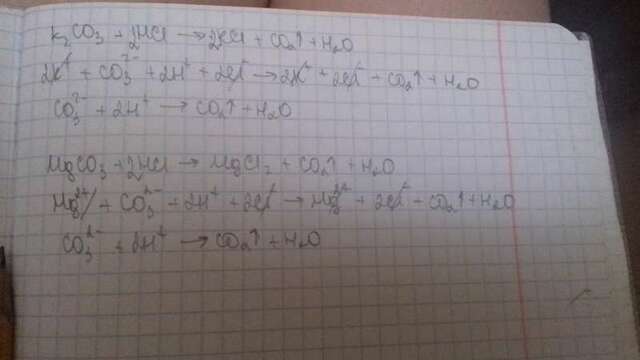 K₂CO₃ + 2HCl → 2KCl + CO₂↑ + H₂O
2K⁺ + CO₃²⁻ + 2H⁺ + 2Cl⁻ → 2K⁺ + 2Cl⁻ + CO₂↑ + H₂O
CO₃²⁻ + 2H⁺ → CO₂↑ + H₂O
MgCO₃ + 2HCl → MgCl₂ + CO₂↑ + H₂O
Mg²⁺ + CO₃²⁻ + 2H⁺ + 2Cl⁻ → Mg²⁺ + 2Cl⁻ + CO₂↑ + H₂O
CO₃²⁻ + 2H⁺ → CO₂↑ + H₂O